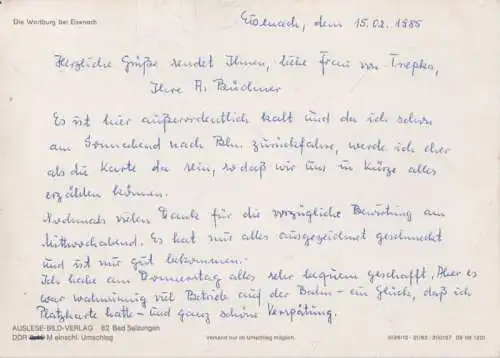 Die Wartburg bei Eisenach
Eisenach, dem 15.02.1985
Herzliche Grüße sendet Ihnen, liebe Frau von Trepka,
Ihre A. Büchner
Es ist hier außerordentlich kalt und da ich schon
am Sonnabend nach Bln. zurückfahre, werde ich eher
als die Karte da sein, so daß wir uns in Kürze alles
erzählen können.
Nochmals vielen Dank für die vorzügliche Bewirtung am
Mittwochabend. Es hat mir alles ausgezeichnet geschmeckt
und ist mir gut bekommen.
Ich habe am Donnerstag alles sehr bequem geschafft. Aber es
war wahnsinnig viel Betrieb auf der Bahn - ein Glück, daß ich
Platzkarte hatte - und ganz schöne Verspätung.
AUSLESE-BILD-VERLAG 62 Bad Salzungen
DDR M einschl. Umschlag
Versand nur im Umschlag möglich.